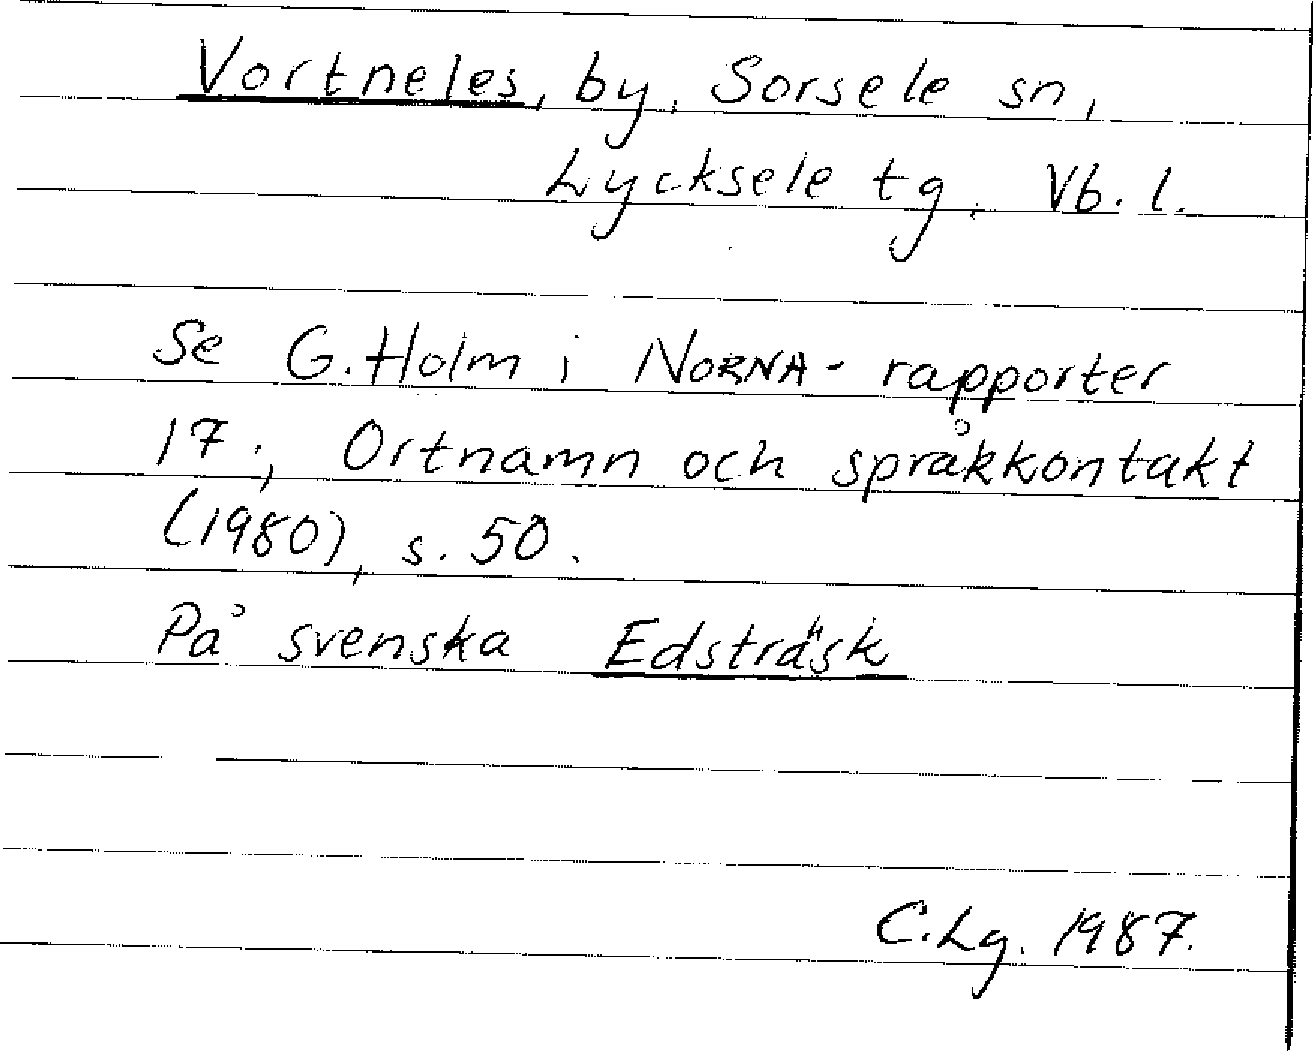 Vortneles, by, Sorsele sn,
Lycksele tg, Vb. l.
Se G. Holm i NORNA-rapporter
17; Ortnamn och språkkontakt
(1980), s. 50.
På svenska Edsträsk
C.Lg. 1987.